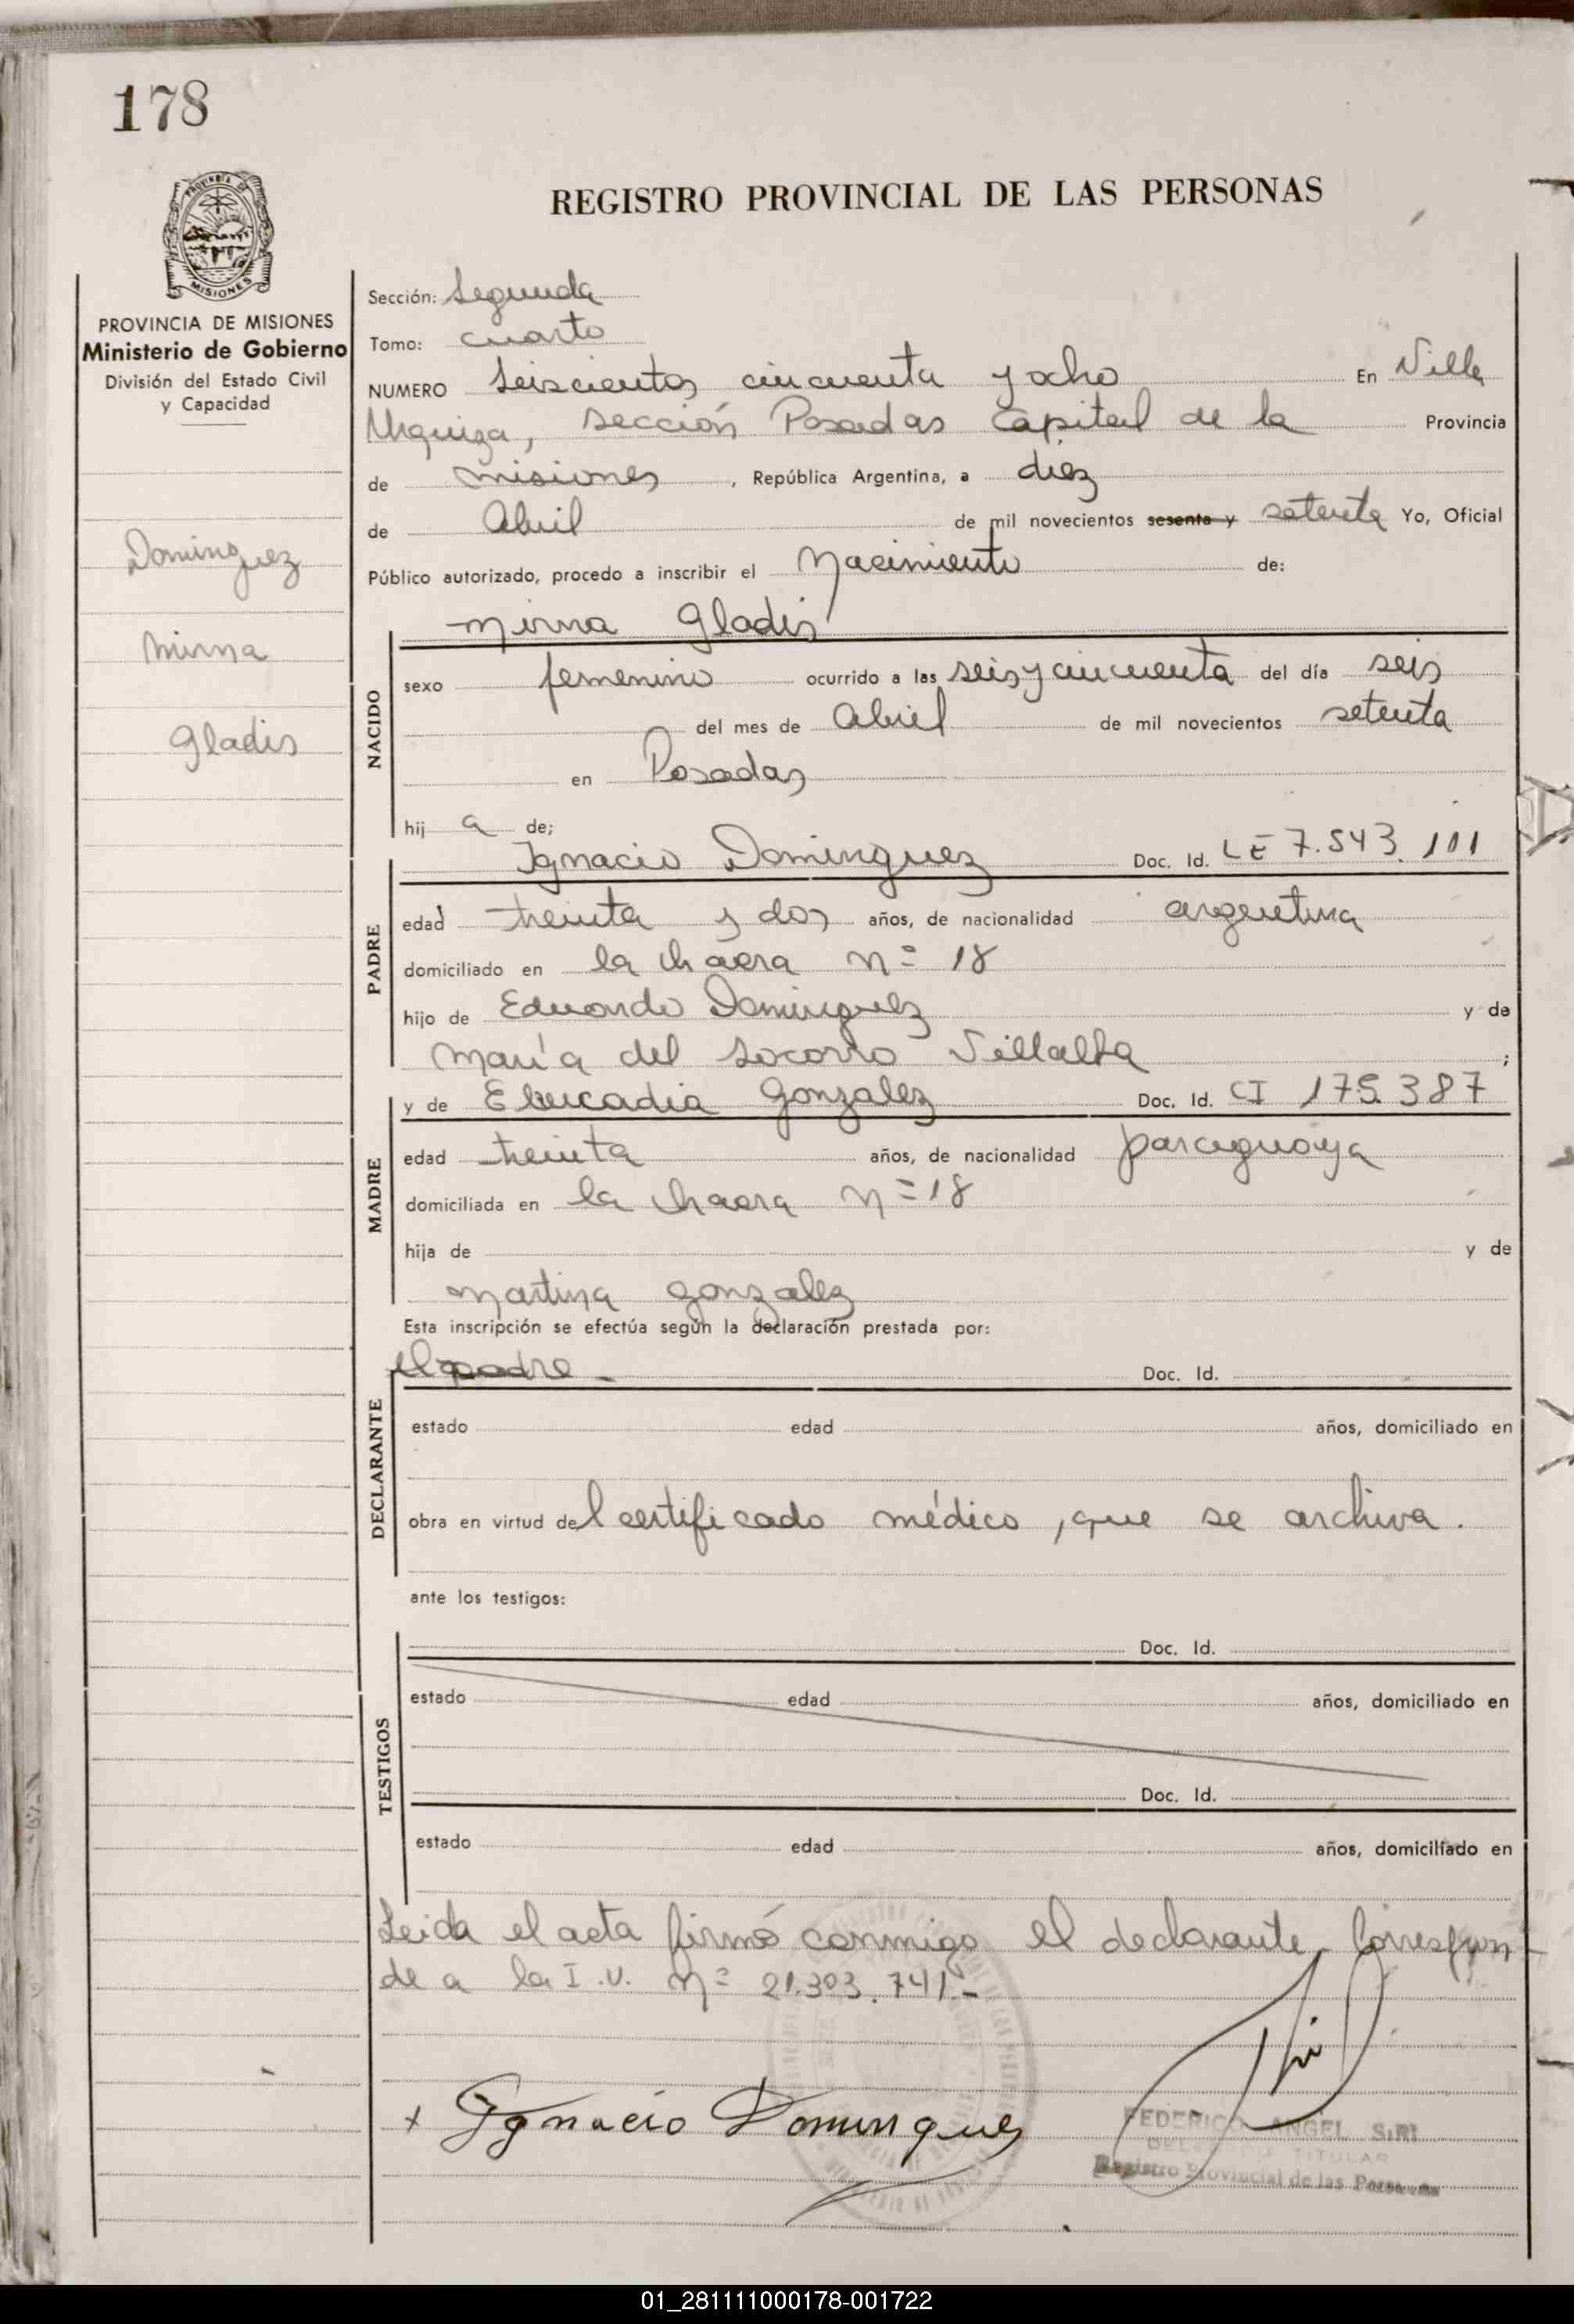 178
PROVINCIA DE MISIONES
REGISTRO PROVINCIAL DE LAS PERSONAS
PROVINCIA DE MISIONES
Ministerio de Gobierno
División del Estado Civil
y Capacidad
Dominguez
Mirna
Gladis
Sección: Segunda
Tomo: cuarto
NUMERO Seiscientos cincuenta y ocho En Villa
Urquiza, sección Posadas Capital de la Provincia
de misiones, República Argentina, a diez
de Abril de mil novecientos sesenta y setenta Yo, Oficial
Público autorizado, procedo a inscribir el Nacimiento de:
Mirna Gladis
NACIDO
sexo femenino ocurrido a las seis y cincuenta del día seis
del mes de Abril de mil novecientos setenta
en Posadas
hij a de;
PADRE
Ignacio Dominguez Doc. Id. LE 7.543.101
edad treinta y dos años, de nacionalidad argentina
domiciliado en la chacra nº 18
hijo de Eduardo Dominguez y de
María del Socorro Villalba ;
MADRE
y de Gonzalez Doc. Id. CI 175.387
edad treinta años, de nacionalidad paraguaya
domiciliada en la chacra nº 18
hija de y de
Martina Gonzalez
Esta inscripción se efectúa según la declaración prestada por:
DECLARANTE
el padre - Doc. Id.
estado edad años, domiciliado en
obra en virtud del certificado médico, que se archiva.
ante los testigos:
TESTIGOS
Doc. Id.
estado edad años, domiciliado en
Doc. Id.
estado edad años, domiciliado en
Leida el acta firmó conmigo el declarante, Correspon-
de a la I.U. nº 21.303.741.-
x Ygnacio Domingues
FEDERICO ANGEL
TITULAR
Registro Provincial de las Personas
01_281111000178-001722